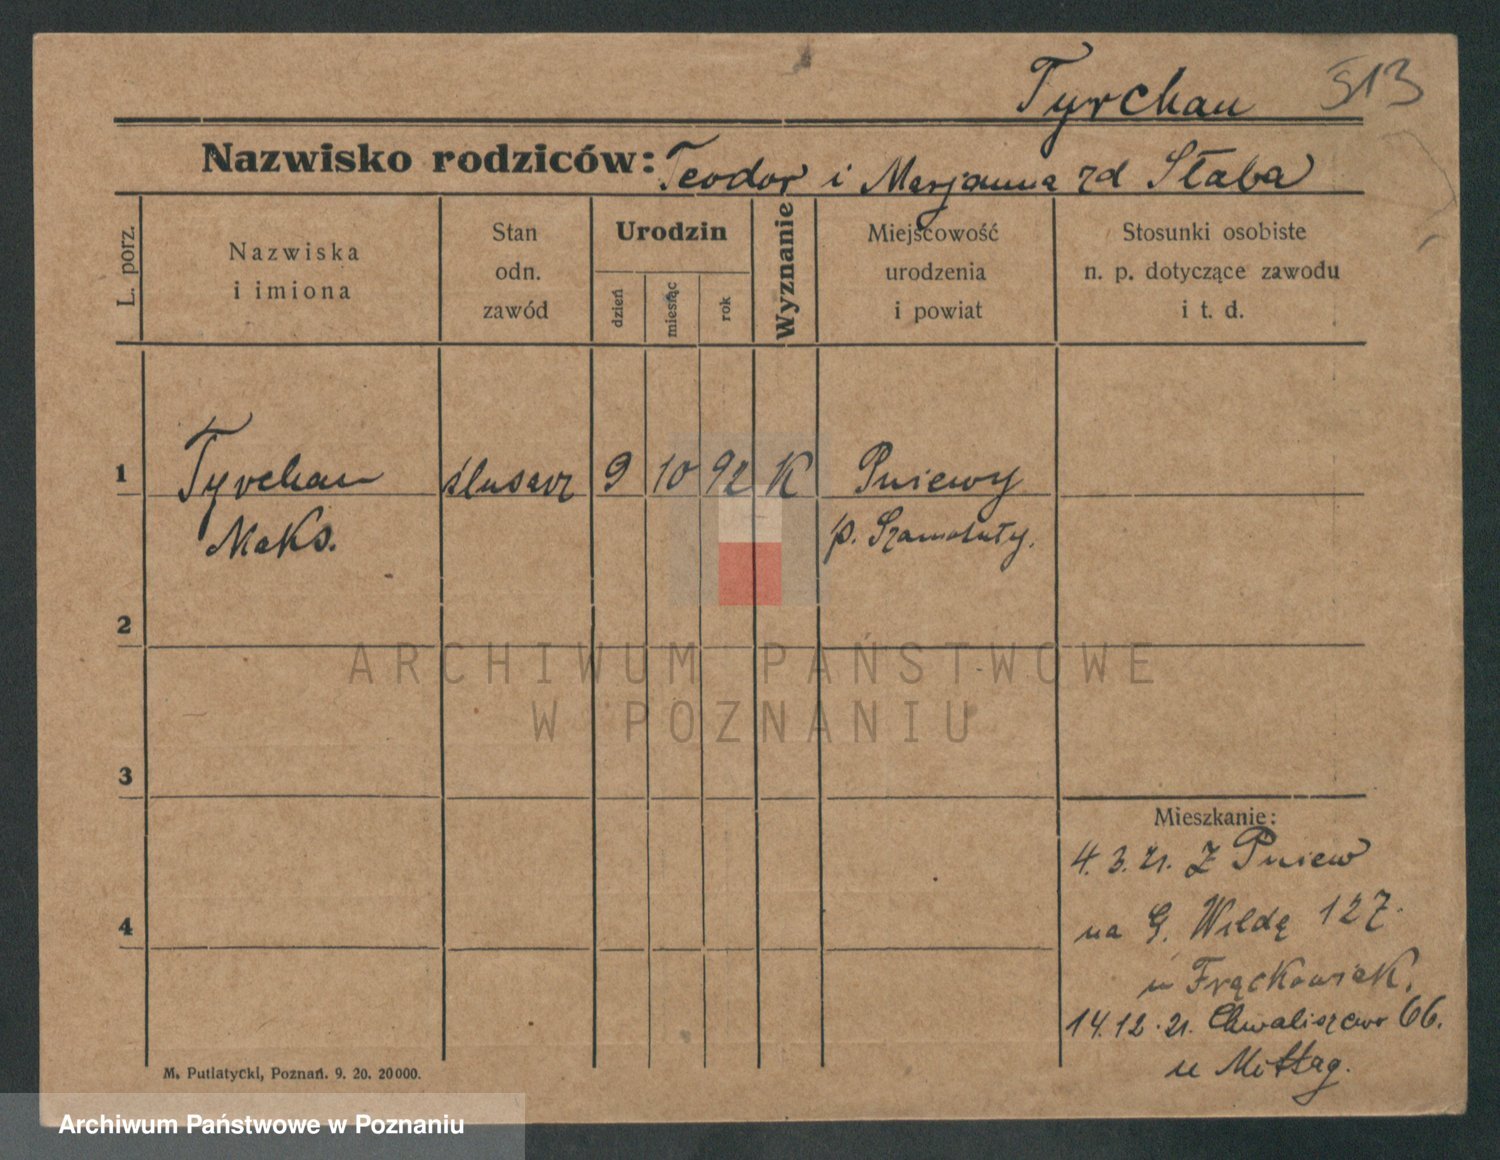 Tyrchan 513
Nazwisko rodziców: Teodor i Marjanna zd Słaba
L. porz.
Nazwiska
i imiona
Stan
odn.
zawód
Urodzin
dzień
miesiąc
rok
Wyznanie
Miejscowość
urodzenia
i powiat
Stosunki osobiste
n. p. dotyczące zawodu
i t. d.
1 Tyrchan ślusarz 9 10 92 K Pniewy
Maks. p. Szamotuły.
2
ARCHIWUM PAŃSTWOWE
W POZNANIU
3
Mieszkanie:
4. 3. 21. Z Pniew
4
na G. Wildę 127.
u Frąckowiak.
14. 12. 21. Chwaliszewo 66.
u Mittag.
M. Putiatycki, Poznań. 9. 20. 20000.
Archiwum Państwowe w Poznaniu